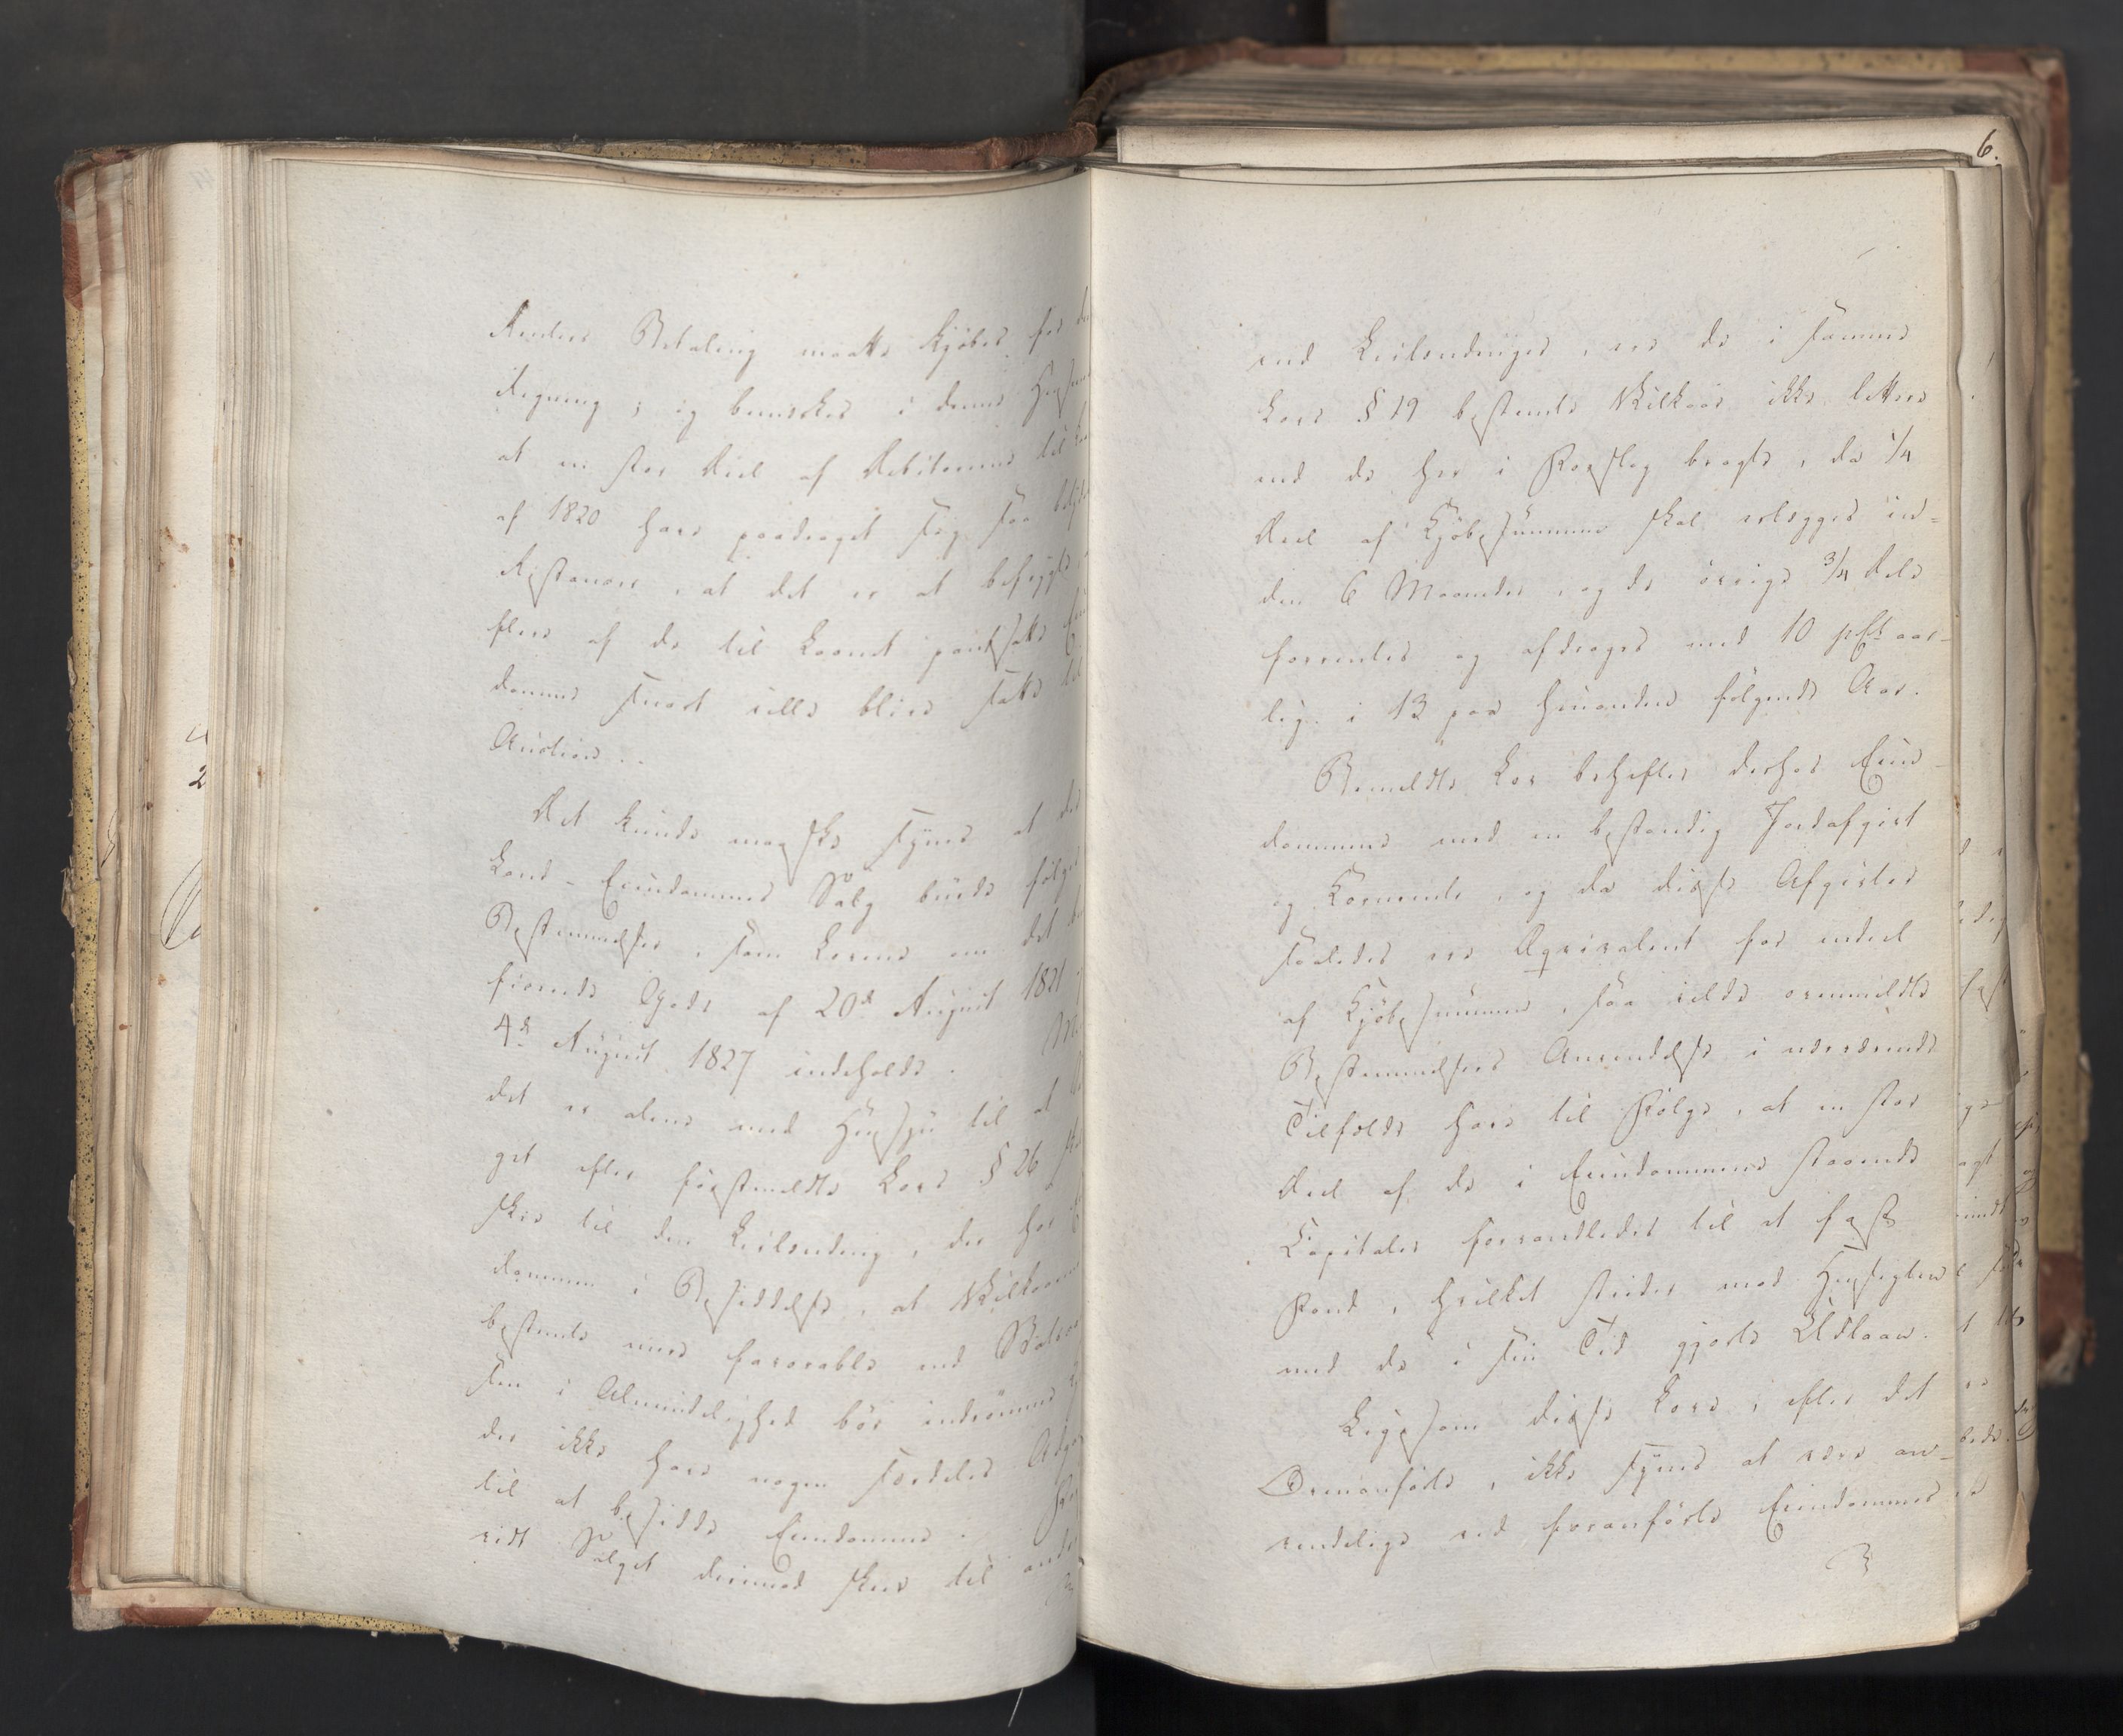 Renters Betaling maatte kjöbes for
Regning; og bemærkes i denne
at en stor Deel af Debitorerne til
af 1820 have paadraget sig saa
Restancer, at det er at befrygte
flere af de til Laanet pantsatte
domme snart ville blive satte til
Auction.
Det kunde maaske synes at
Land-Eiendommes Salg burde fölge
Bestemmelser, som Lovene om det
ficerede Gods af 20de August 1821
4de August 1827 indeholde.
det er alene med Hensyn til at
get efter förstmeldte Lovs § 26
skee til den Leilending, der har
dommen i Besiddelse, at Vilkaarene
bestemte mere favorable end
sen i Almindelighed bör indrömmes
der ikke have nogen særdeles Adgang
til at besidde Eiendomme.
vidt Salget derimod skeer til
end Leilendinger, ere de i samme
Lovs § 29 bestemte Vilkaar ikke lettere
end de her i Forslag bragte, da 1/4
Deel af Kjöbesummen skal erlægges in-
den 6 Maaneder, og de övrige 3/4 Dele
forrentes og afdrages med 10 pCt aar-
lig i 13 paa hinanden fölgende Aar.
Bemeldte Lov behefter derhos Eien-
dommene med en bestandig Jordafgivt
og Kornrente, og da disse Afgivter
saaledes ere Æqvivalent for endeel
af Kjöbesummen, saa vilde ovenmeldte
Bestemmelsers Anvendelse i nærværende
Tilfælde have til Fölge, at en stor
Deel af de i Eiendommene staaende
Capitaler forvandledes til et fast
Fond, hvilket strider mod Hensigten
med de i sin Tid gjorte Udlaan.
Ligesom disse Love, efter det
Ovenanförte, ikke synes at være an-
vendelige ved foranförte Eiendommes
6.